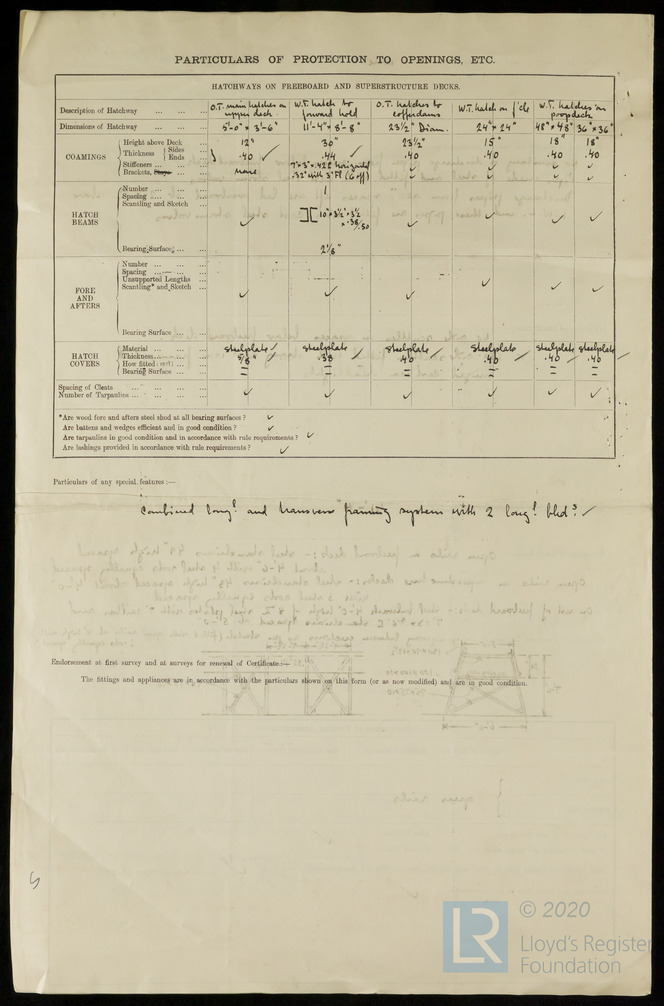 PARTICULARS OF PROTECTION TO OPENINGS, ETC.
HATCHWAYS ON FREEBOARD AND SUPERSTRUCTURE DECKS.
Description of Hatchway ... ... ... O.T. main hatches on upper deck W.T. hatch to forward hold O.T. hatches to cofferdams W.T. hatch on f'cle W.T. hatches on poop deck
Dimensions of Hatchway ... ... ... 5'-0" × 3'-6" 11'-4" × 8'-8" 23½" Diam. 24" × 24" 48" × 48" 36" × 36"
COAMINGS
Height above Deck ... 12" 30" 23½" 15" 18" 18"
Thickness Sides Ends ... .40 ✓ .44 ✓ .40 .40 .40 .40
Stiffeners ... ... ... none 7" × 3" × .42 horizontal ✓ ✓ ✓ ✓
Brackets, Stays ... ... .32" with 3" Fl (6 off) ✓ ✓ ✓ ✓
HATCH BEAMS
Number ... ... ... 1
Spacing ... ... ...
Scantling and Sketch ... ✓ 10" × 3½" × 3½ × .38/.50 ✓ ✓ ✓ ✓
Bearing Surface ... ... 2⅛"
FORE AND AFTERS
Number ... ... ...
Spacing ... ... ...
Unsupported Lengths ...
Scantling* and Sketch ... ✓ ✓ ✓ ✓ ✓ ✓
Bearing Surface ... ...
HATCH COVERS
Material ... ... ... steelplate ✓ steelplate steelplate steelplate steelplate steelplate
Thickness ... ... 5/8" .38 .40 .40 .40 .40
How fitted ... ...
Bearing Surface ... ...
Spacing of Cleats ... ... ...
Number of Tarpaulins ... ... ... ✓ ✓ ✓ ✓ ✓ ✓
*Are wood fore and afters steel shod at all bearing surfaces? ✓
Are battens and wedges efficient and in good condition? ✓
Are tarpaulins in good condition and in accordance with rule requirements? ✓
Are lashings provided in accordance with rule requirements? ✓
Particulars of any special features:—
Combined longl. and transverse framing system with 2 longl. bhds. ✓
Endorsement at first survey and at surveys for renewal of Certificate:—
The fittings and appliances are in accordance with the particulars shown on this form (or as now modified) and are in good condition.
LR
© 2020
Lloyd's Register
Foundation